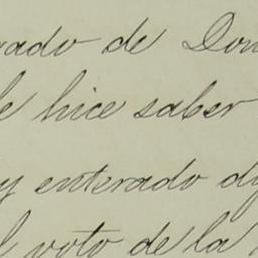 rado de Don
le hice saber
y enterado dij
l voto de la